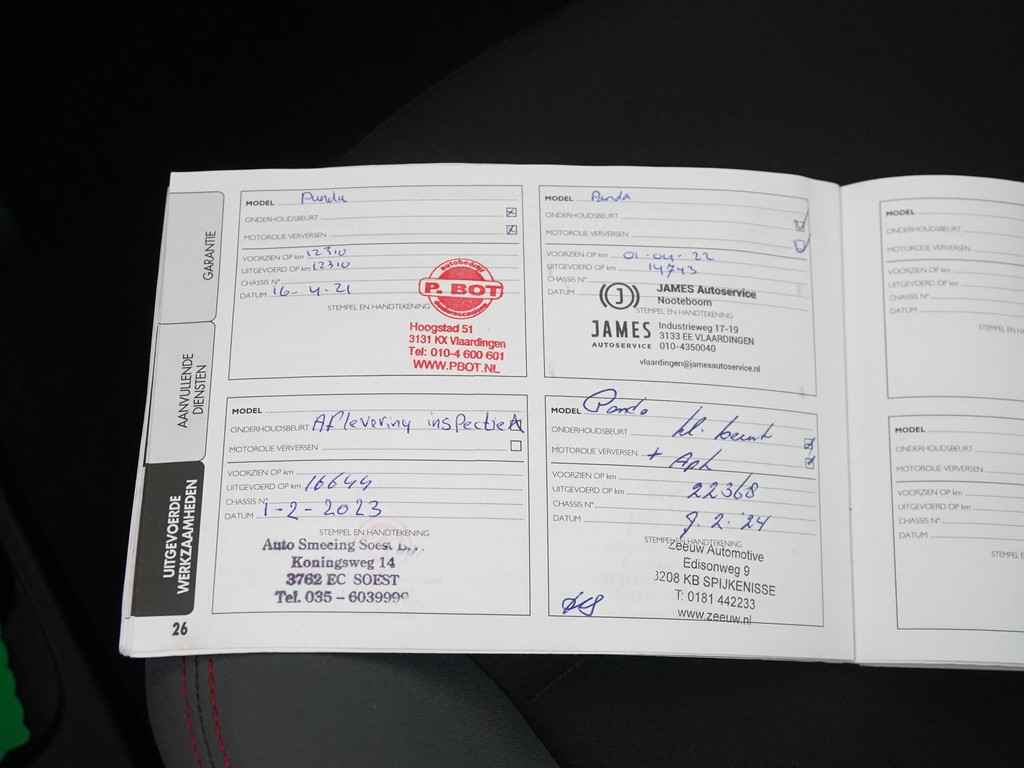 GARANTIE
AANVULLENDE
DIENSTEN
UITGEVOERDE
WERKZAAMHEDEN
26
MODEL Panda
ONDERHOUDSBEURT
MOTOROLIE VERVERSEN
VOORZIEN OP km 12310
UITGEVOERD OP km 12310
CHASSIS N°
DATUM 16-4-21
STEMPEL EN HANDTEKENING
autobedrijf
P. BOT
Hoogstad 51
3131 KX Vlaardingen
Tel: 010-4 600 601
WWW.PBOT.NL
MODEL Panda
ONDERHOUDSBEURT
MOTOROLIE VERVERSEN
VOORZIEN OP km 01-04-22
UITGEVOERD OP km 14743
CHASSIS N°
DATUM
STEMPEL EN HANDTEKENING
JAMES Autoservice
Nooteboom
JAMES
AUTOSERVICE
Industrieweg 17-19
3133 EE VLAARDINGEN
010-4350040
vlaardingen@jamesautoservice.nl
MODEL
ONDERHOUDSBEURT Aflevering inspectie
MOTOROLIE VERVERSEN
VOORZIEN OP km
UITGEVOERD OP km 16644
CHASSIS N°
DATUM 1-2-2023
STEMPEL EN HANDTEKENING
Auto Smeeing Soest B.V.
Koningsweg 14
3762 EC SOEST
Tel. 035 - 6039999
MODEL Panda
ONDERHOUDSBEURT kl. beurt
MOTOROLIE VERVERSEN + Apk
VOORZIEN OP km
UITGEVOERD OP km 22368
CHASSIS N°
DATUM 9.2.'24
STEMPEL EN HANDTEKENING
Zeeuw Automotive
Edisonweg 9
3208 KB SPIJKENISSE
T: 0181 442233
www.zeeuw.nl
MODEL
ONDERHOUDSBEURT
MOTOROLIE VERVERSEN
VOORZIEN OP km
UITGEVOERD OP km
CHASSIS N°
DATUM
STEMPEL EN
MODEL
ONDERHOUDSBEURT
MOTOROLIE VERVERSEN
VOORZIEN OP km
UITGEVOERD OP km
CHASSIS N°
DATUM
STEMPEL